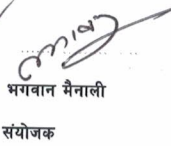 भगवान मैनाली
संयोजक